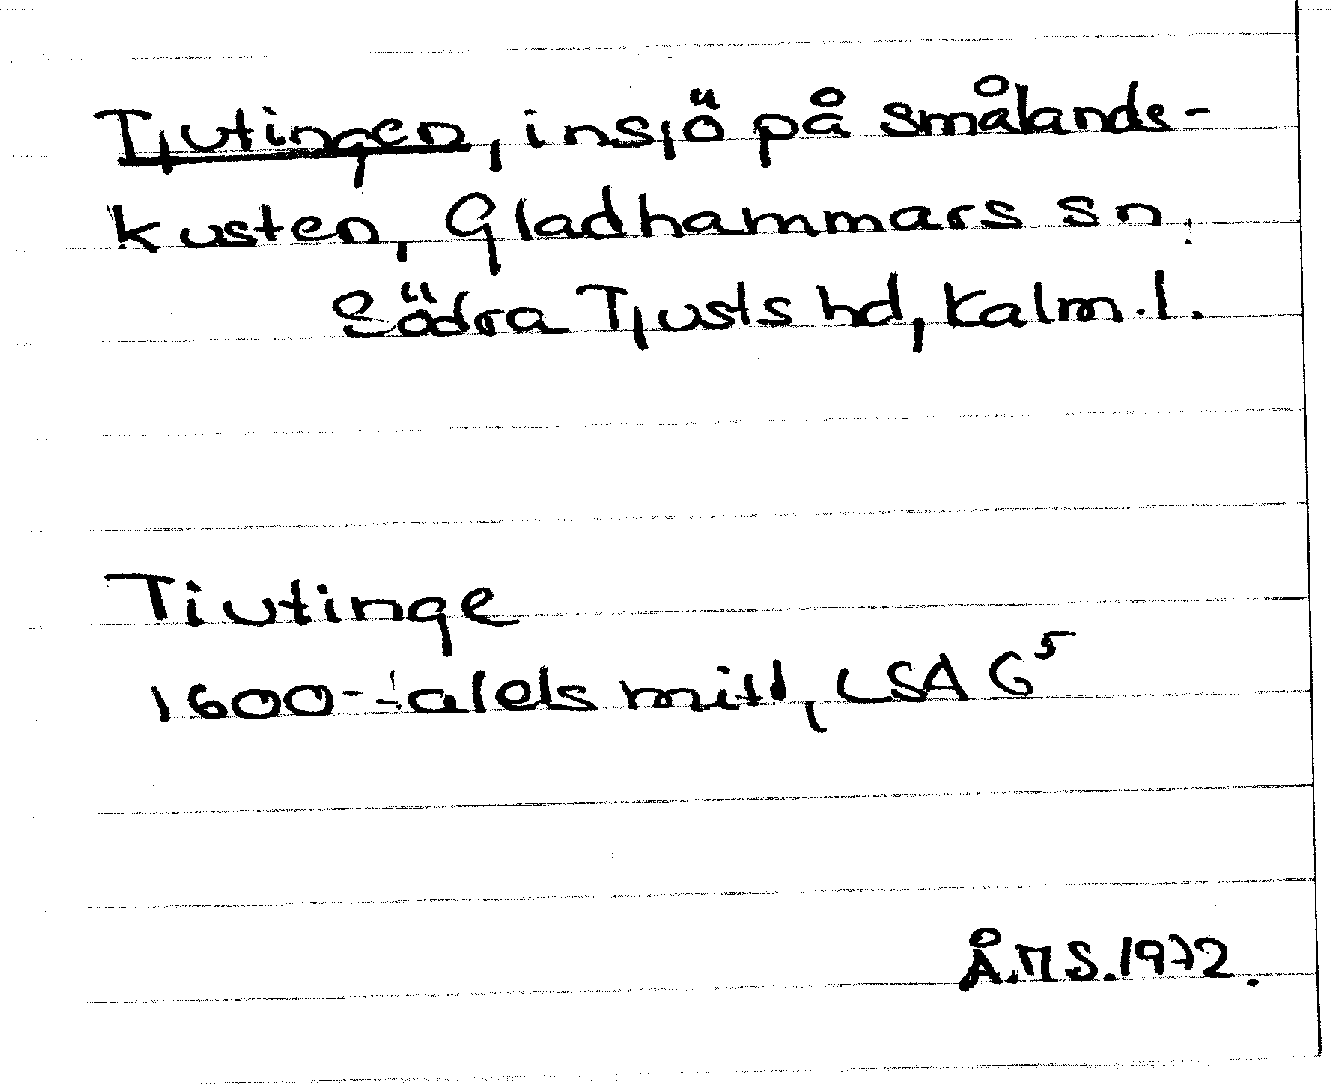 Tjutingen, insjö på smålands-
kusten, Gladhammars sn,
Södra Tjusts hd, Kalm. l.
Tiutinge
1600-talets mitt, LSA G⁵
Å.M S. 1972.